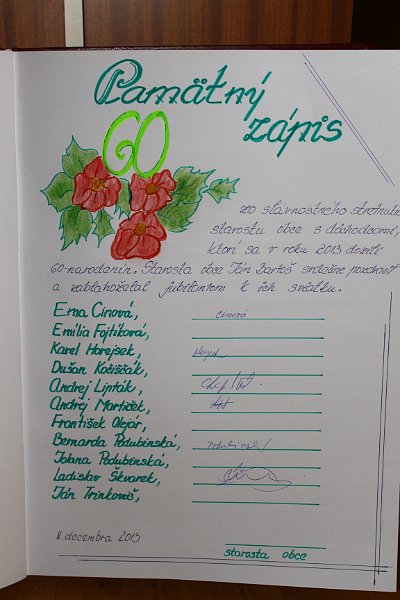 Pamätný
zápis
60
zo slávnostného stretnutia
starostu obce s dôchodcami,
ktorí sa v roku 2013 dožili
60-narodenín. Starosta obce Ján Bartoš srdečne pozdravil
a zablahoželal jubilantom k ich sviatku.
Erna Cínová, Cínová
Emília Fojtíková,
Karel Horejsek,
Dušan Kočiščák,
Andrej Lipták,
Andrej Martiček,
František Olejár,
Bernarda Podubinská,
Jolana Podubinská,
Ladislav Škvarek,
Ján Trinkovič,
8 decembra 2013
starosta obce